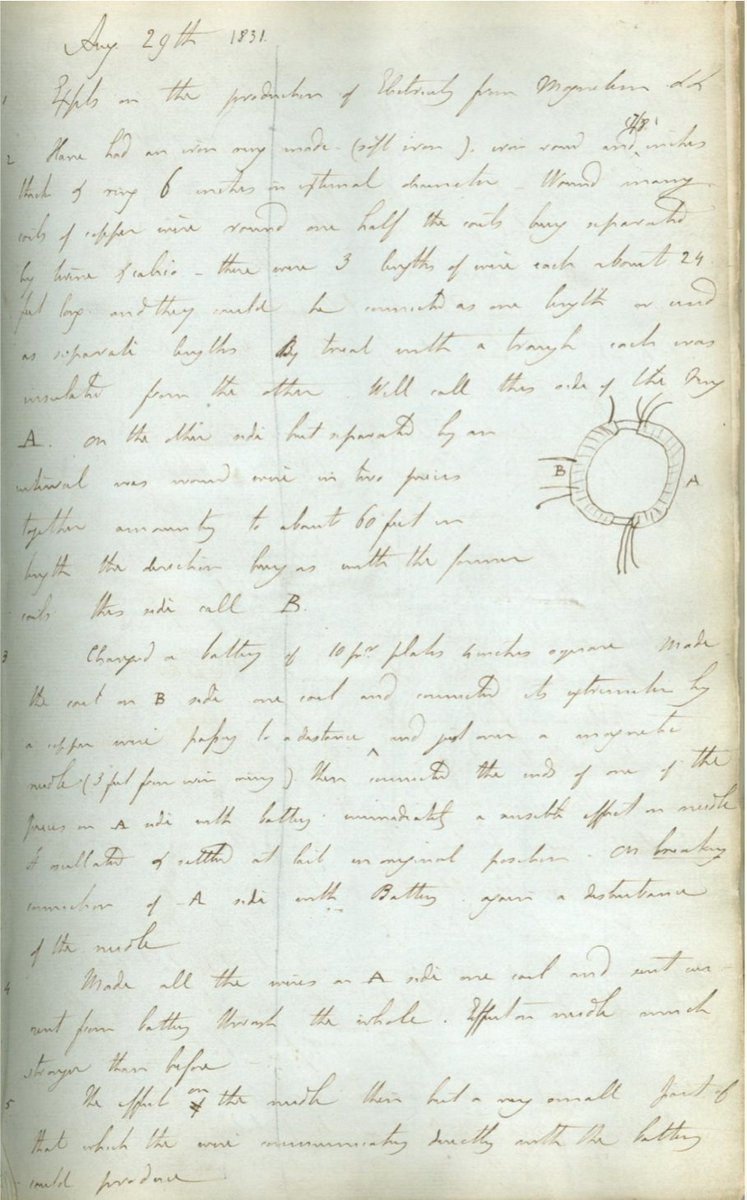 Aug 29th 1831.
1 Expts on the production of Electricity from Magnetism &c &c
2 Have had an iron ring made (soft iron), iron round and 7/8 inches
thick & ring 6 inches in external diameter. Wound many
coils of copper wire round one half the coils being separated
by twine & calico - there were 3 lengths of wire each about 24
feet long and they could be connected as one length or used
as separate lengths By trial with a trough each was
insulated from the other Will call this side of the Ring
A. on the other side but separated by an
interval was wound wire in two pieces
together amounting to about 60 feet in
length the direction being as with the former
coils this side call B.
B A
3 Charged a battery of 10 pr plates 4 inches square Made
the coil on B side one coil and connected its extremities by
a copper wire passing to a distance and just over a magnetic
needle (3 feet from wire ring). then connected the ends of one of the
pieces on A side with battery. immediately a sensible effect on needle
It oscillated & settled at last in original position. On breaking
connection of A side with Battery again a disturbance
of the needle
4 Made all the wires on A side one coil and sent cur-
rent from battery through the whole. Effect on needle much
stronger than before
5 The effect on the needle then but a very small part of
that which the wire communicating directly with the battery
could produce